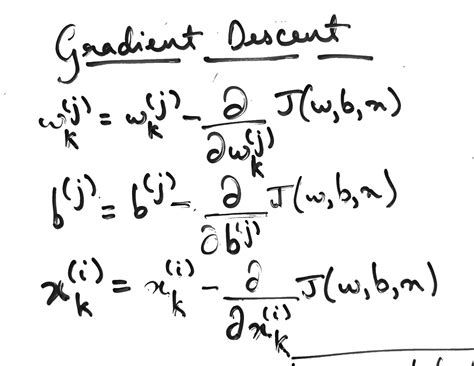 Gradient Descent
w_k^(j) = w_k^(j) - ∂/∂w_k^(j) J(w,b,x)
b^(j) = b^(j) - ∂/∂b^(j) J(w,b,x)
x_k^(i) = x_k^(i) - ∂/∂x_k^(i) J(w,b,x)